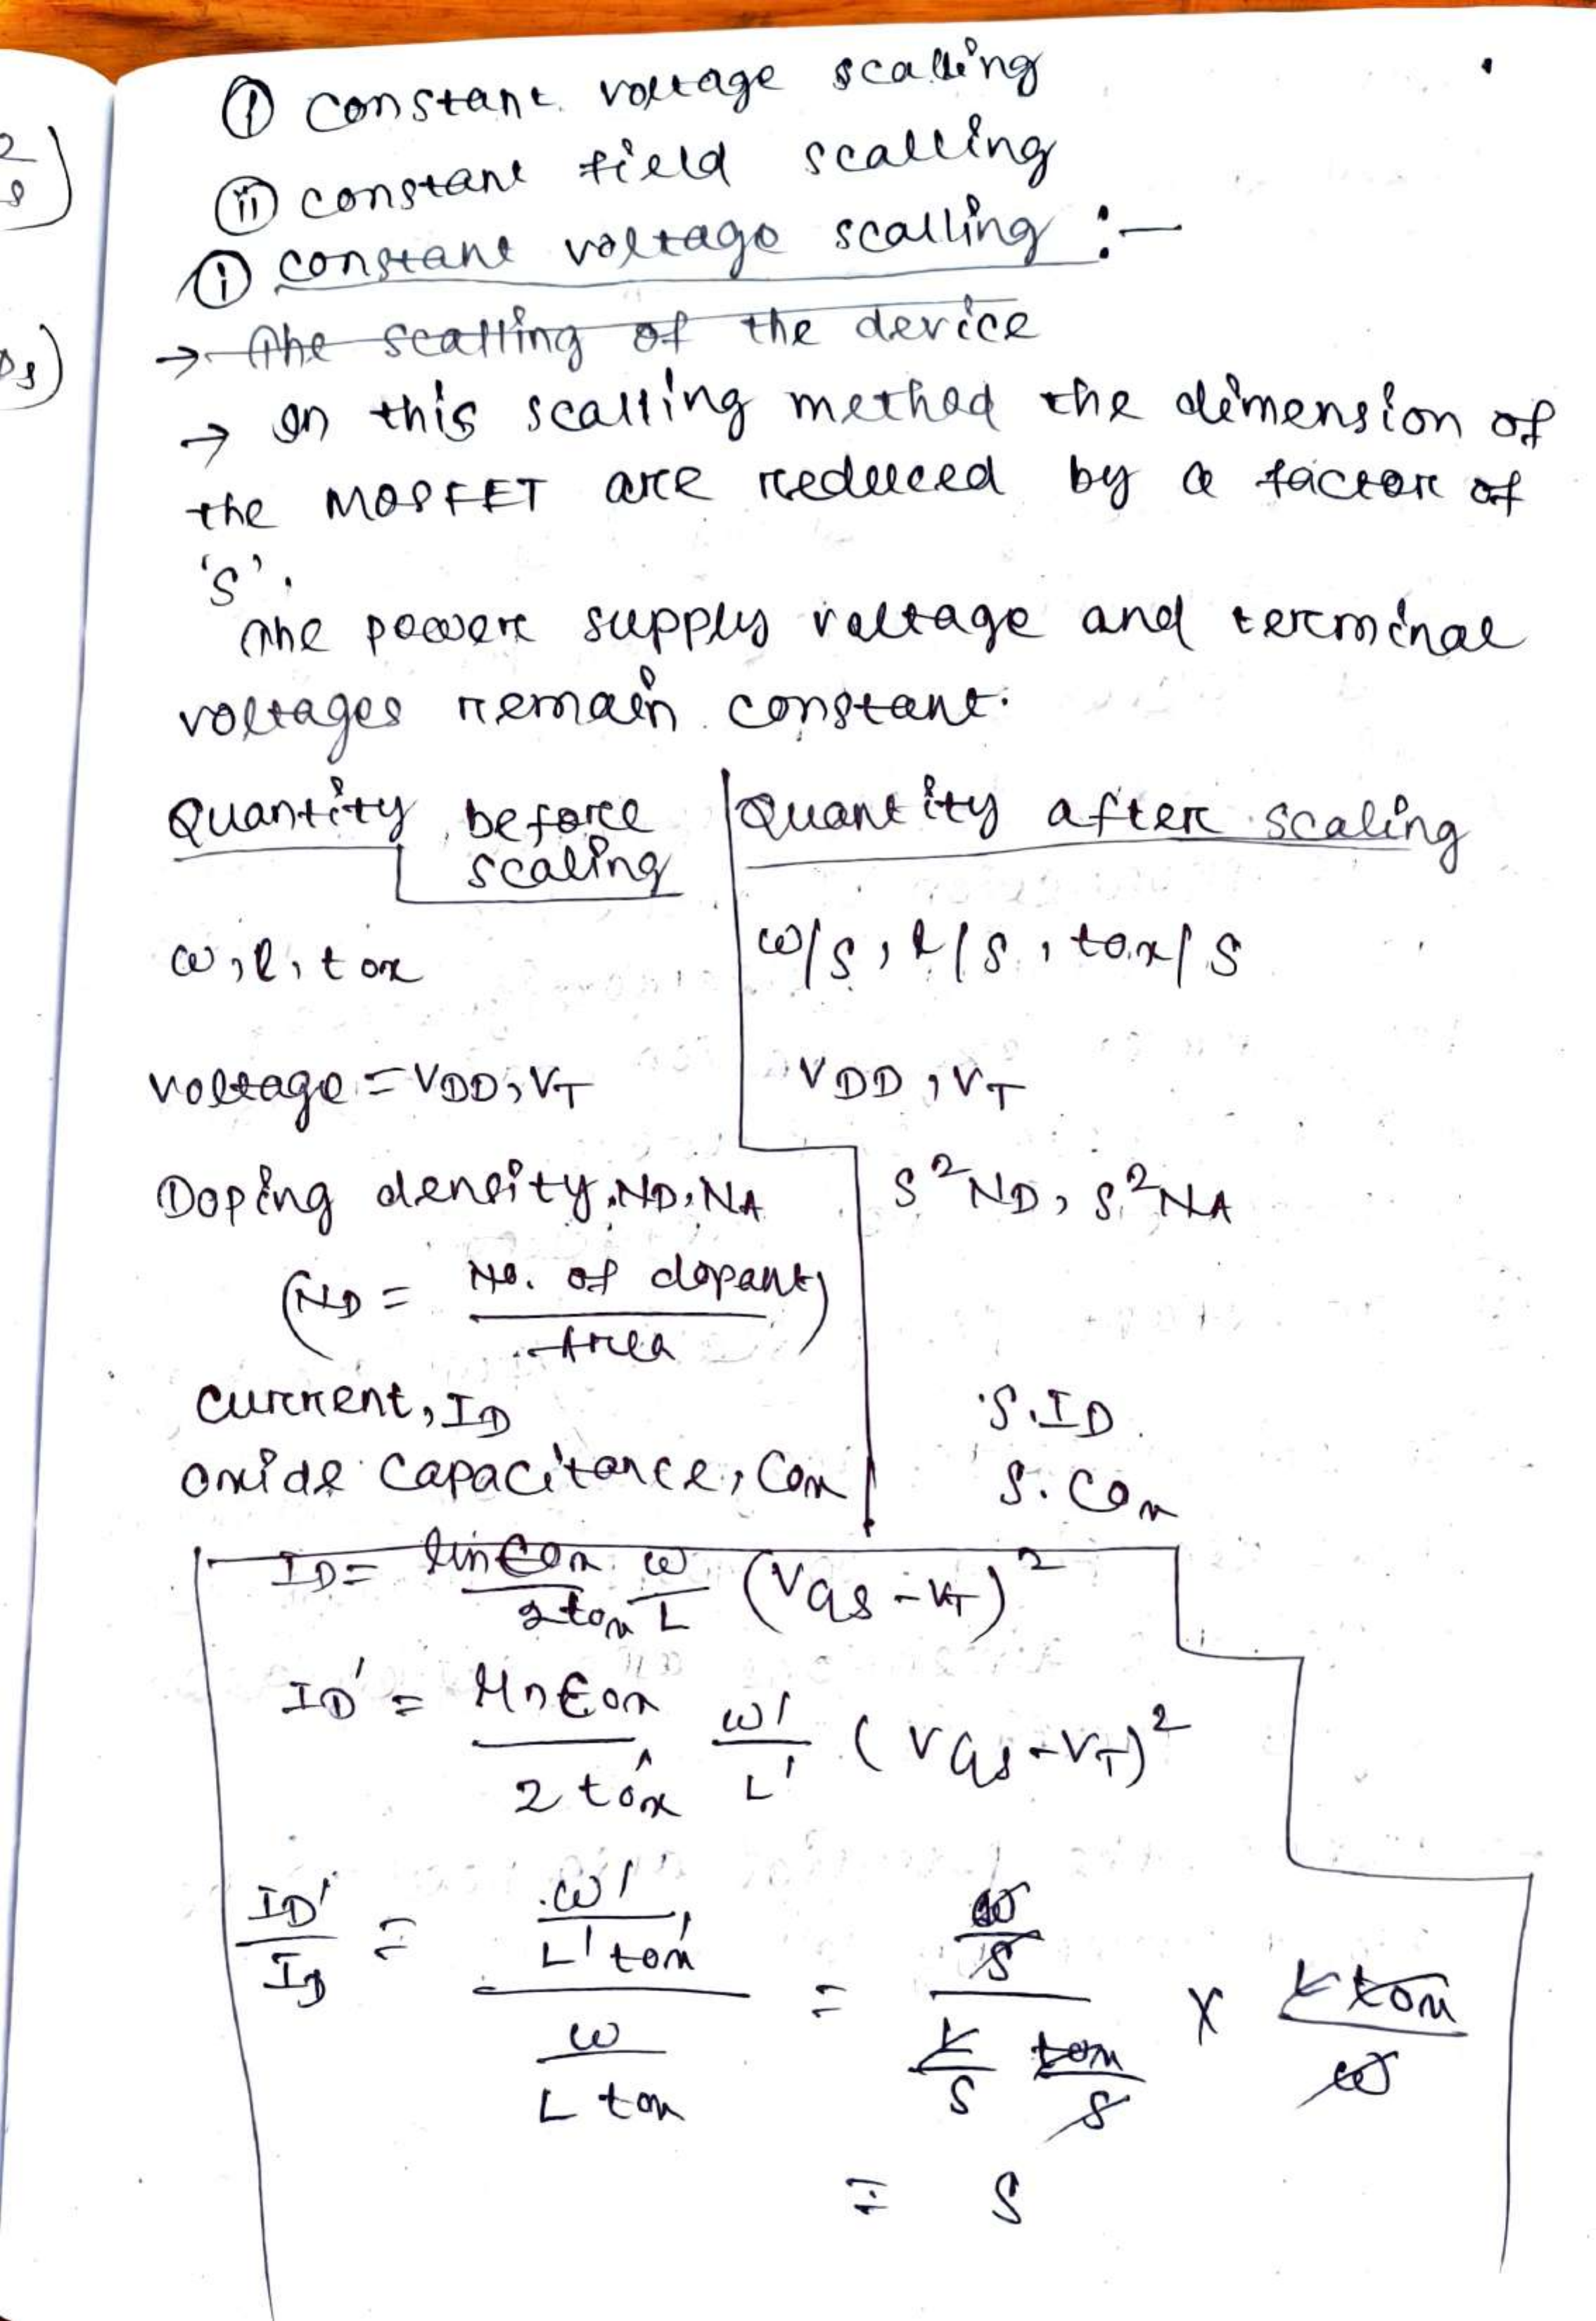 ① constant voltage scalling
ⅱ constant field scalling
ⅰ constant voltage scalling :-
→ The scalling of the device
→ In this scalling method the dimension of
the MOSFET are reduced by a factor of
's'.
The power supply voltage and terminal
voltages remain constant.
Quantity before scaling | Quantity after scaling
W, L, tox | W/S, L/S, tox/S
voltage = VDD, VT | VDD, VT
Doping density, ND, NA | S²ND, S²NA
(ND = No. of dopant / Area)
Current, ID | S.ID
Oxide Capacitance, Cox | S. Cox
ID = μn€ox / 2tox W/L (VGS - VT)²
ID' = μn€ox / 2tox' W'/L' (VGS - VT)²
ID'/ID = (W' / L' tox') / (W / L tox) = (W/S) / (L/S tox/S) × L tox / W
= S